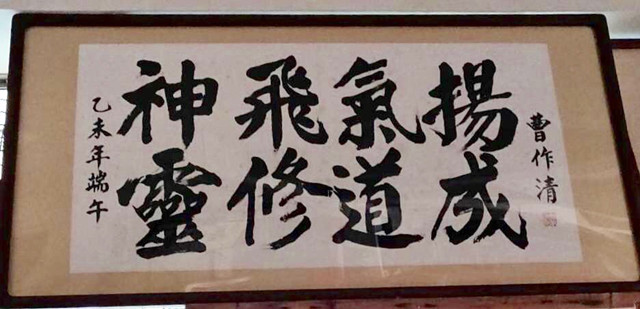 乙未年端午
神飛氣揚
靈修道成
曹作清